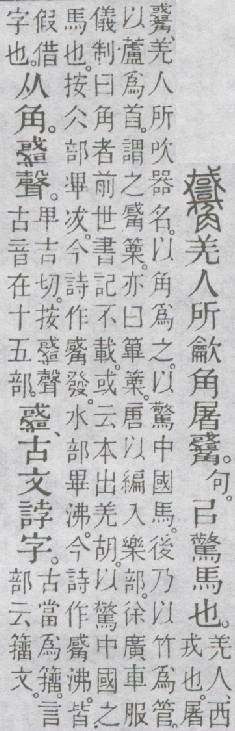 羌人所龡角屠𧥑。句。㠯驚馬也。羌人、西
戎也。屠
𧥑、羌人所吹器名。以角爲之。以驚中國馬。後乃以竹爲管。
以蘆爲首。謂之觱篥。亦曰篳篥。唐以編入樂部。徐廣車服
儀制曰角者前世書記不載。或云本出羌胡。以驚中國之
馬也。按仌部畢冹。今詩作觱發。水部畢沸。今詩作觱沸。皆
假借
字也。从角。𢨋聲。甲吉切。按𢨋聲
古音在十五部。𢨋、古文誖字。古當爲籒。言
部云籒文。